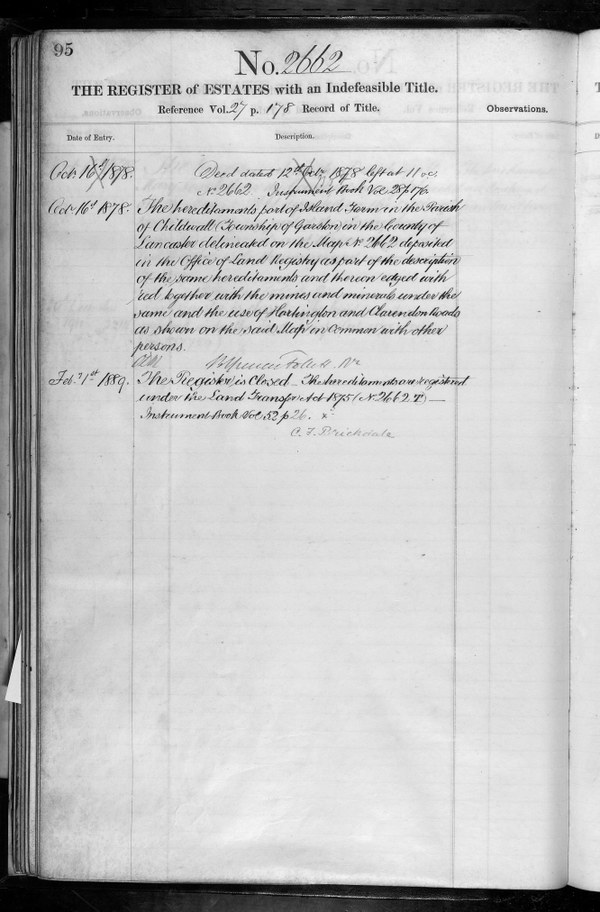 95
No. 2662
THE REGISTER of ESTATES with an Indefeasible Title.
Reference Vol. 27 p. 178 Record of Title.
Observations.
Date of Entry.
Description.
Oct. 16th 1878. Deed dated 12th Octr. 1878 left at 11 oc.
No 2662 Instrument Book Vol 28 p 176.
Octr. 16th 1878. The hereditaments part of Island Farm in the Parish
of Childwall (Township of Garston) in the County of
Lancaster delineated on the Map No 2662 deposited
in the Office of Land Registry as part of the description
of the same hereditaments and thereon edged with
red together with the mines and minerals under the
same and the use of Hartington and Clarendon Roads
as shown on the said Map in common with other
persons.
Follett
Feb. 1st 1889. The Register is Closed – The hereditaments are registered
under the Land Transfer Act 1875 (No. 2662 T) —
Instrument Book Vol 52 p 26.
C. F. Brickdale